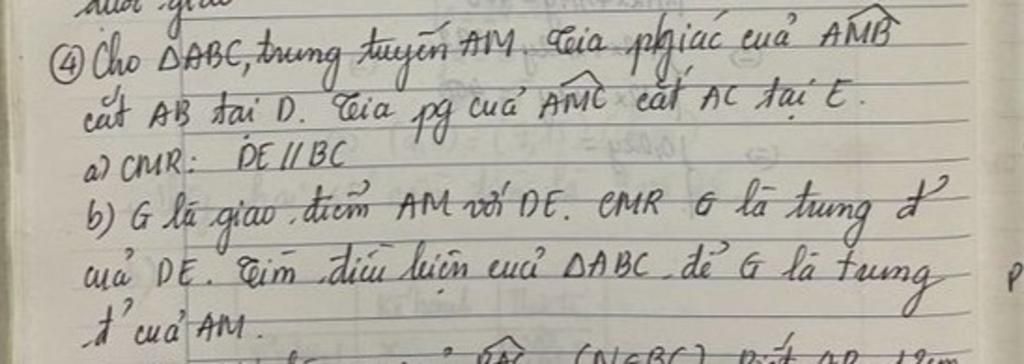 ④ Cho ΔABC, trung tuyến AM. Tia phgiác của AMB
cắt AB tại D. Tia pg của AMC cắt AC tại E.
a) CMR: DE // BC
b) G là giao điểm AM với DE. CMR G là trung đ'
của DE. Tìm điều kiện của ΔABC để G là trung
đ' của AM.